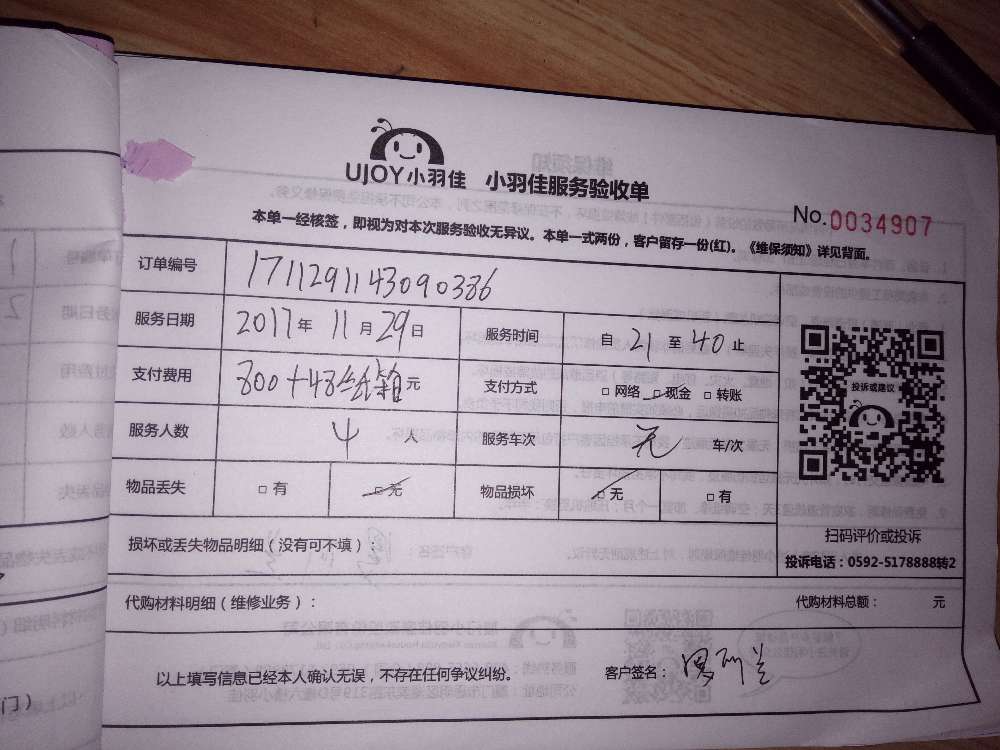 UJOY小羽佳 小羽佳服务验收单
No.0034907
本单一经核签，即视为对本次服务验收无异议。本单一式两份，客户留存一份(红)。《维保须知》详见背面。
订单编号 1711291143090386
服务日期 2017年 11月29日 服务时间 自 21 至 40 止
支付费用 800+48纸箱元 支付方式 □网络 □现金 □转账
投诉或建议
服务人数 4 人 服务车次 无 车/次
物品丢失 □有 □无 物品损坏 □无 □有
扫码评价或投诉
投诉电话：0592-5178888转2
损坏或丢失物品明细（没有可不填）：
代购材料明细（维修业务）： 代购材料总额： 元
以上填写信息已经本人确认无误，不存在任何争议纠纷。 客户签名：
门）